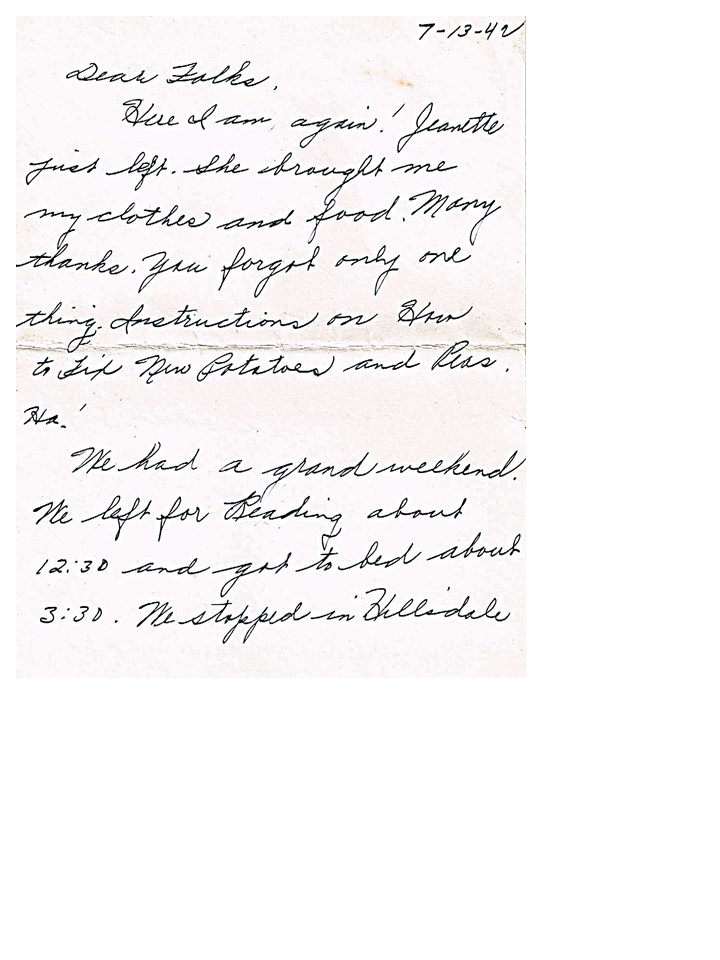 7-13-42
Dear Folks,
Here I am, again! Jeanette
just left. She brought me
my clothes and food. Many
thanks. You forgot only one
thing. Instructions on How
to Fix New Potatoes and Peas.
Ha!
We had a grand weekend.
We left for Reading about
12:30 and got to bed about
3:30. We stopped in Hillsdale